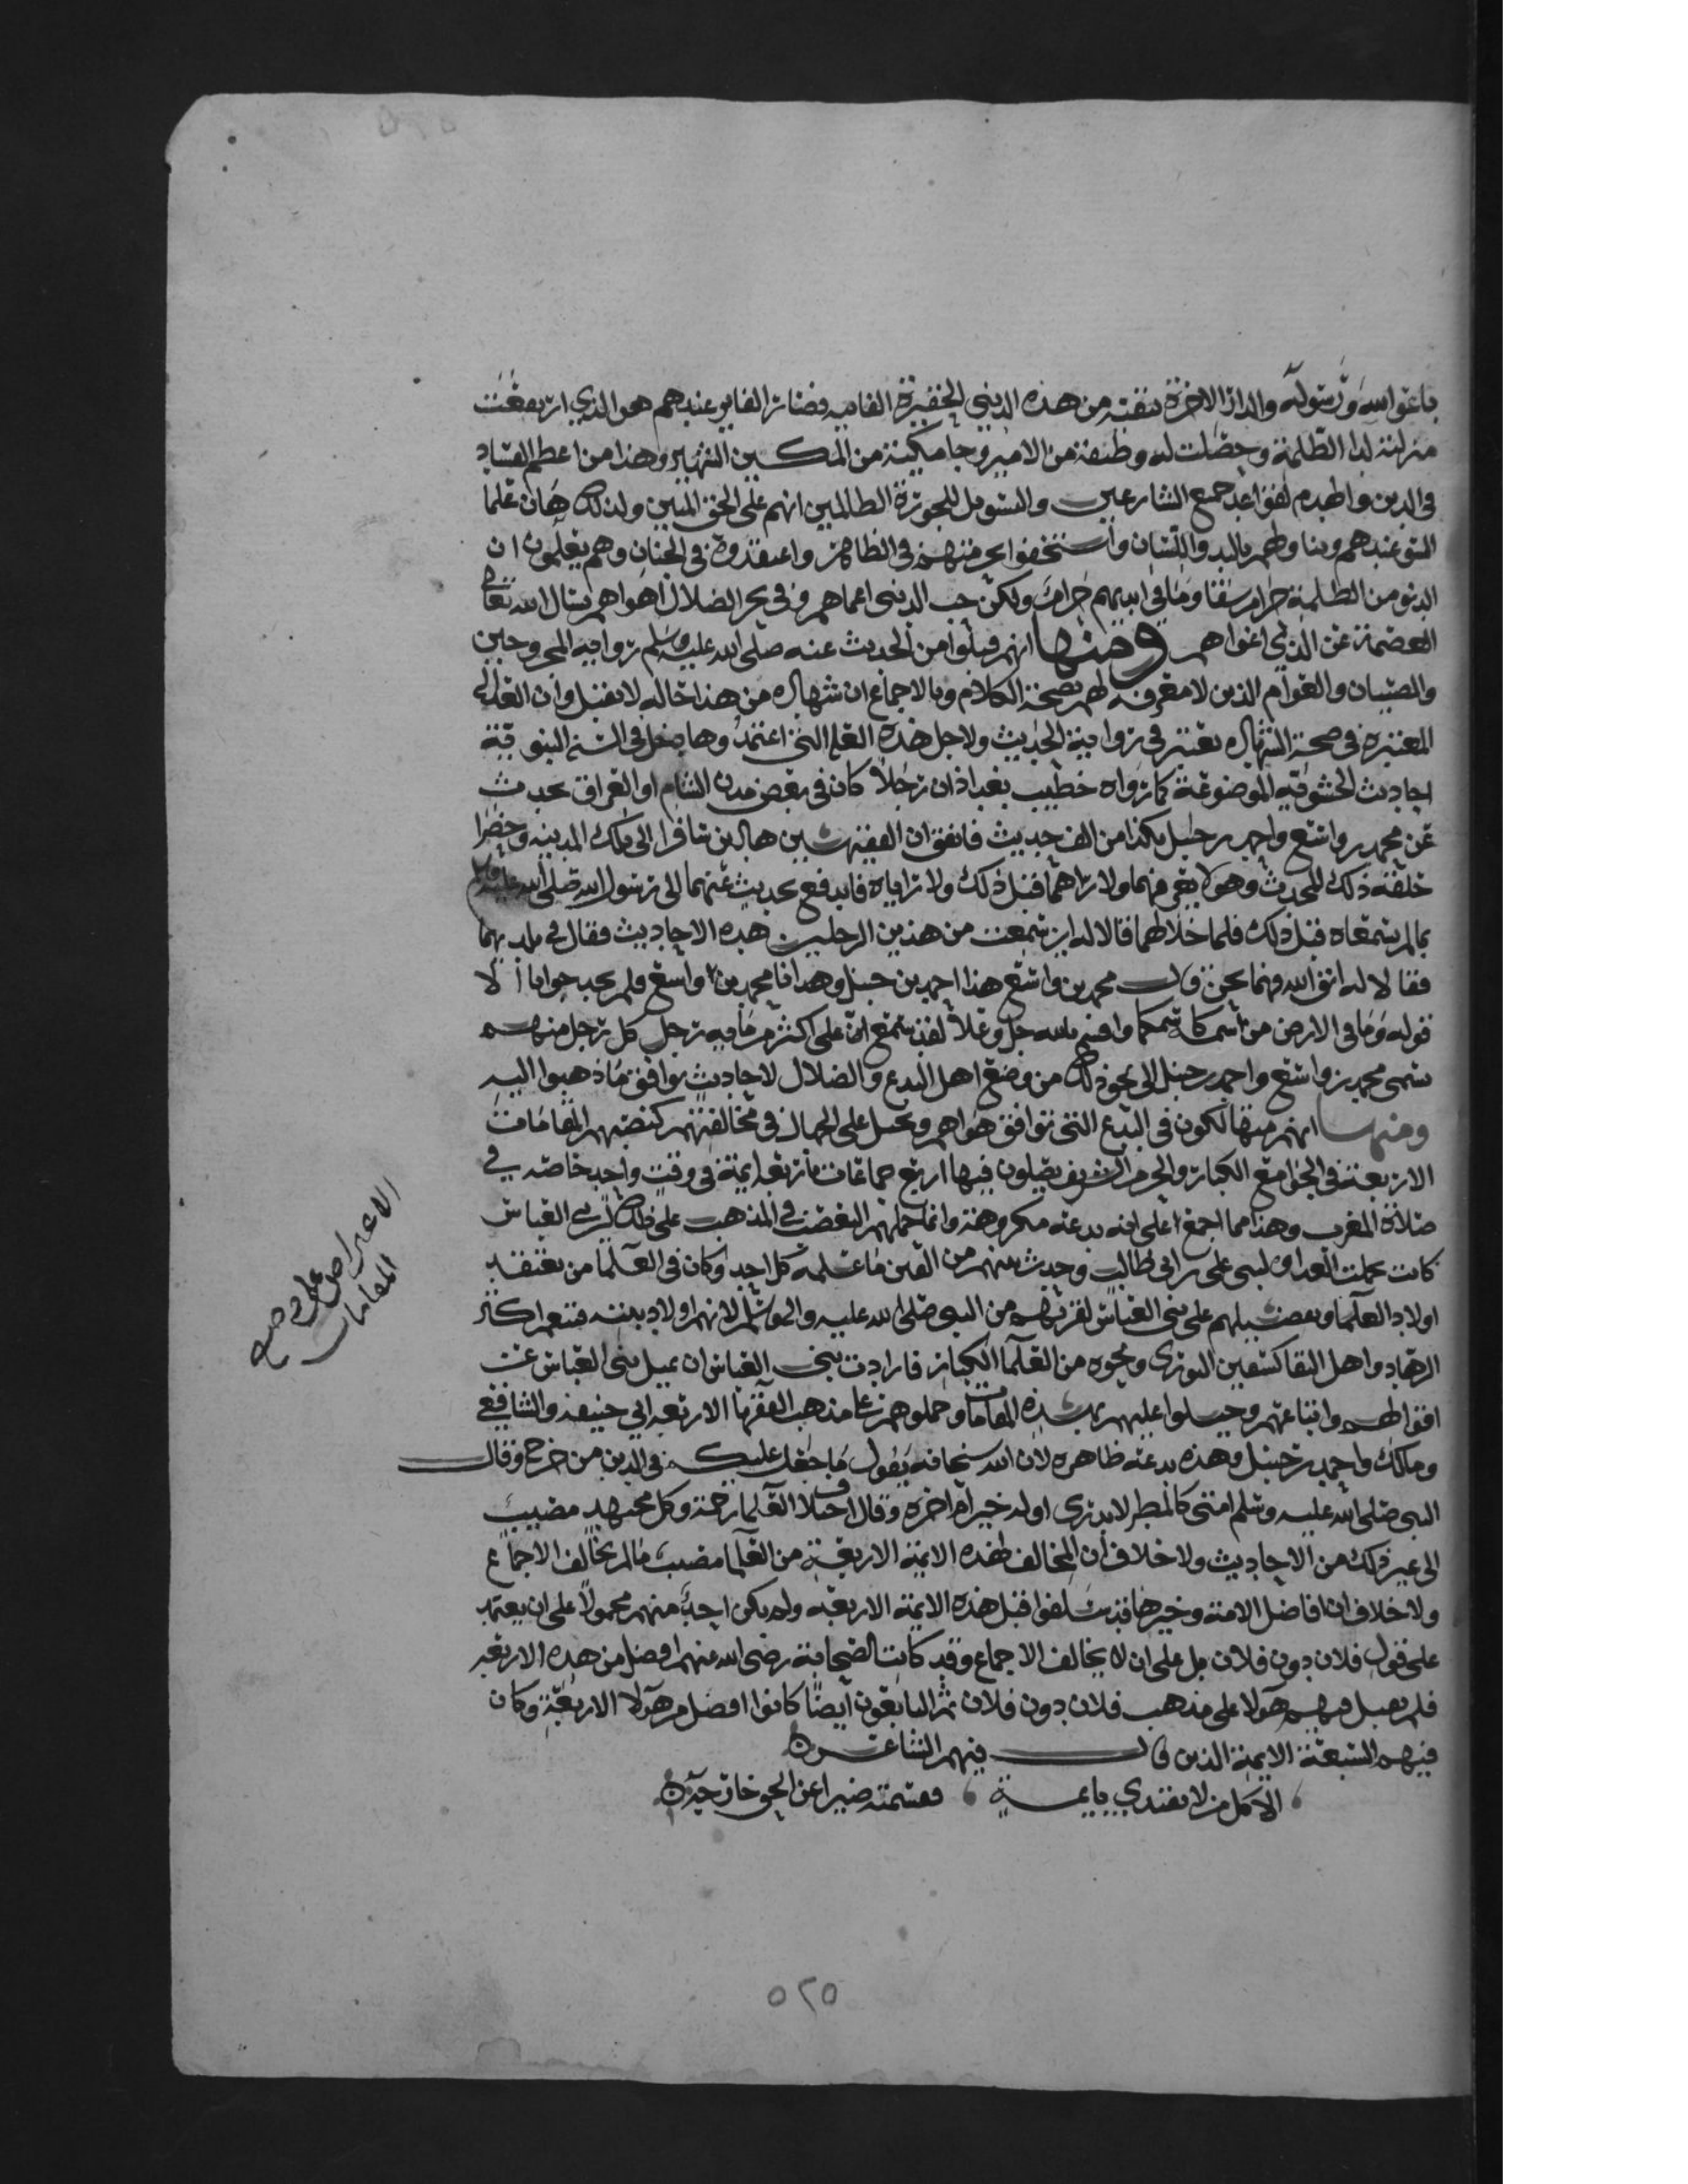 باعوا الله ورسوله والدار الاخرة بتفته من هذه الدنيى الحقيرة الفانيه فصار الفايز عندهم هو الذي ارتفعت
منزلته لدا الظلمة وحصلت له وظيفة من الامير وجامكية من المكسين الشهير وهذا من اعظم الفساد
في الدين واهدم لقواعد جميع الشارعين والتسويل للجورة الظالمين انهم على الحق المبين ولذلك هان علما
السو عندهم وتناولوهم باليد واللسان واستخفوا بحرمتهم في الظاهر واعتقدوه في الجنان وهم يعلمون ان
الدنو من الظلمة حرام وما في ايديهم حرام ولكن حب الدنيى اعماهم وفي بحر الضلال اهواهم نسال الله تعالى
العصمة عن الذي اغواهم ومنها انهم قبلوا من الحديث عنه صلى الله عليه وسلم رواية المجروحين
والصبيان والعوام الذين لا معرفة لهم بصحة الكلام وبالاجماع ان شهادة من هذا حاله لا تقبل وان العداله
المعتبره في صحة الشهادة تعتبر في رواية الحديث ولاجل هذه العله التي اعتمدوها دخل في السنة النبوية
احاديث الحشوية الموضوعة كما رواه خطيب بغداذ ان رجلا كان في بعض مدن الشام او العراق يحدث
عن محمد بن واسع واحمد بن حنبل بكذا من الف حديث فاتفق ان الفقيهين هاذين سافرا الى تلك المدينه وحضرا
حلقة ذلك المحدث وهو لا يعرفهما ولا راهما قبل ذلك ولا رأياه فاندفع يحدث عنهما الى رسول الله صلى الله عليه وسلم
بما لم يسمعاه قبل ذلك فلما خلا لهما قالا له اين سمعت من هذين الرجلين هذه الاحاديث فقال في بلديهما
فقالا له اتق الله فهما نحن قال محمد بن واسع هذا احمد بن حنبل وهذا انا محمد بن واسع فلم يجد جوابا الا
قوله وما في الارض من اسمه كاسمكما واقسم بالله جل وعلا لقد سمع انه على اكثر من مايه رجل كل رجل منهم
يسمى محمد بن واسع واحمد بن حنبل الى نحو ذلك من وضع اهل البدع والضلال لاحاديث توافق ما ذهبوا اليه
ومنها انهم منهمكون في البدع التي توافق هواهم وتحمل على الجهال في مخالفتهم كنصبهم المقامات
الاربعة في الجوامع الكبار والحرم الشريف يصلون فيها اربع جماعات باربعة ايمة في وقت واحد خاصه في
صلاة المغرب وهذا مما اجمع على انه بدعه مكروهة وانما حملهم التعصب في المذهب على ذلك لبني العباس
كانت بحملت العداوة لبني علي بن ابي طالب وحدث بينهم من الفتن ما علمه كل احد وكان في العلما من يعتقد
اولاد العلما وبعضهم يميلهم على بني العباس لقربهم من النبي صلى الله عليه واله وسلم لانهم اولاد بنته فتبعهم اكثر
الزهاد واهل التقا كسفين الثوري ونحوه من العلما الكبار فارادت بني العباس ان يميل بني العباس عن
اقوالهم واتباعهم وحيلوا عليهم بهذه المقامات وحملوهم على مذهب الفقها الاربعه ابي حنيفه والشافعي
ومالك واحمد بن حنبل وهذه بدعه ظاهره لان الله سبحانه يقول ما جعل عليكم في الدين من حرج وقال
النبي صلى الله عليه وسلم امتي كالمطر لا يدرى اوله خير ام اخره وقال اختلاف العلما رحمة وكل مجتهد مصيب
الى غير ذلك من الاحاديث ولا خلاف ان المخالف لهذه الايمة الاربعة من العلما مصيب ما لم يخالف الاجماع
ولا خلاف ان افاضل الامة وخيرها قد سلفوا قبل هذه الايمة الاربعة ولم يكن احد منهم محمولا على ان يعتمد
على قول فلان دون فلان بل على ان لا يخالف الاجماع وقد كانت الصحابة رضي الله عنهم افضل من هذه الاربعه
فلم يميل منهم هولا على مذهب فلان دون فلان ثم التابعون ايضا كانوا افضل من هولا الاربعة وكان
فيهم السبعة الايمة الذين قال فيهم الشاعر
الا كل من لا يقتدي بايمة فقسمته ضيزا عن الحق خارجه
الاعتراض على وضع
المقامات
٥٢٥